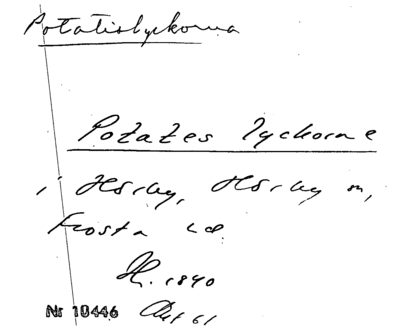 Potatislyckorna
Potates lyckorne
i Hörby, Hörby sn,
Frosta hd
H. 1840
Nr 10446